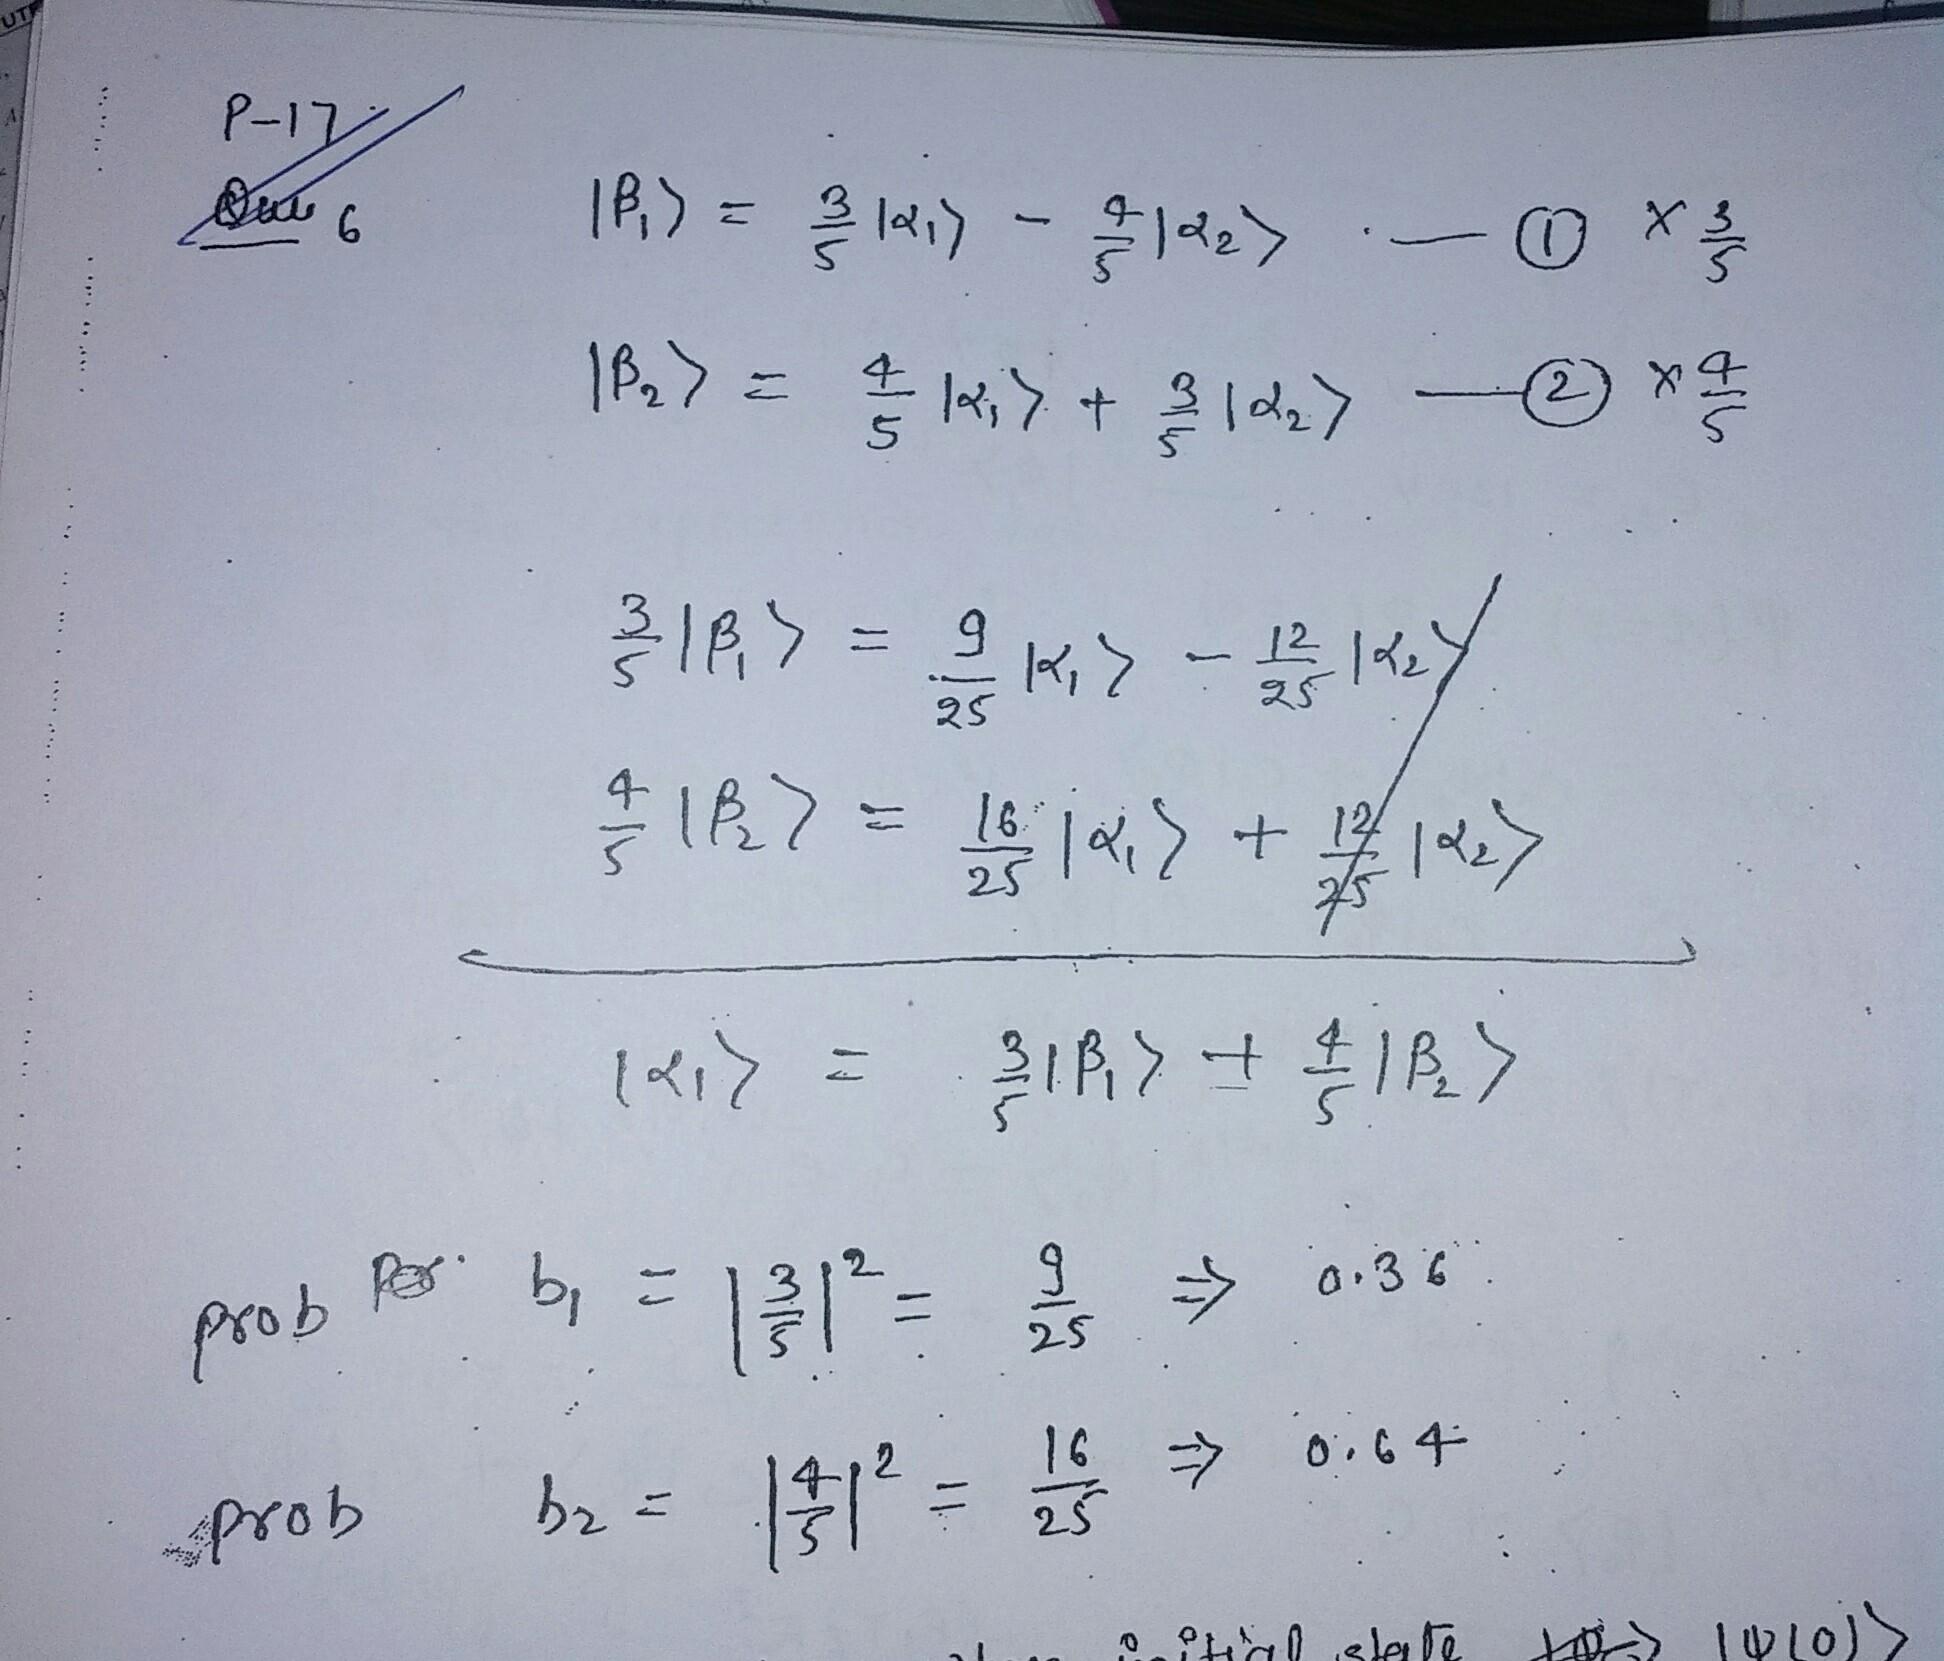 P-17
Que 6
|β₁⟩ = 3/5 |α₁⟩ - 4/5 |α₂⟩ — ① × 3/5
|β₂⟩ = 4/5 |α₁⟩ + 3/5 |α₂⟩ — ② × 4/5
3/5 |β₁⟩ = 9/25 |α₁⟩ - 12/25 |α₂⟩
4/5 |β₂⟩ = 16/25 |α₁⟩ + 12/25 |α₂⟩
|α₁⟩ = 3/5 |β₁⟩ + 4/5 |β₂⟩
prob for b₁ = |3/5|² = 9/25 ⇒ 0.36
prob b₂ = |4/5|² = 16/25 ⇒ 0.64
initial state |ψ(0)⟩